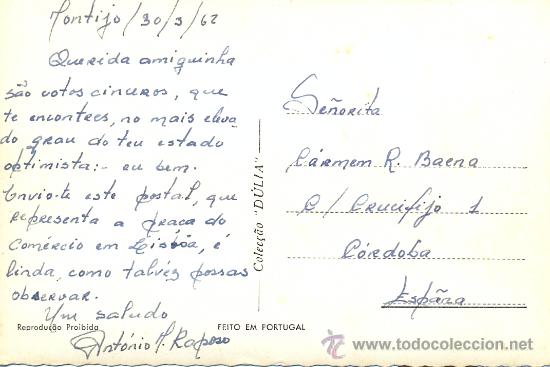 Montijo/30/3/62
Querida amiguinha
são votos cinceros, que
te encontres, no mais eleva
do grau do teu estado
optimista:- eu bem.
Envio-te este postal, que
representa a praça do
Comércio em Lisbôa, é
linda, como talvéz possas
observar.
Um saludo
António J. Raposo
Reprodução Proibida
FEITO EM PORTUGAL
Colecção "DÚLIA"
Señorita
Cármem R. Baena
C/ Crucifijo 1
Córdoba
España
todocoleccion.net